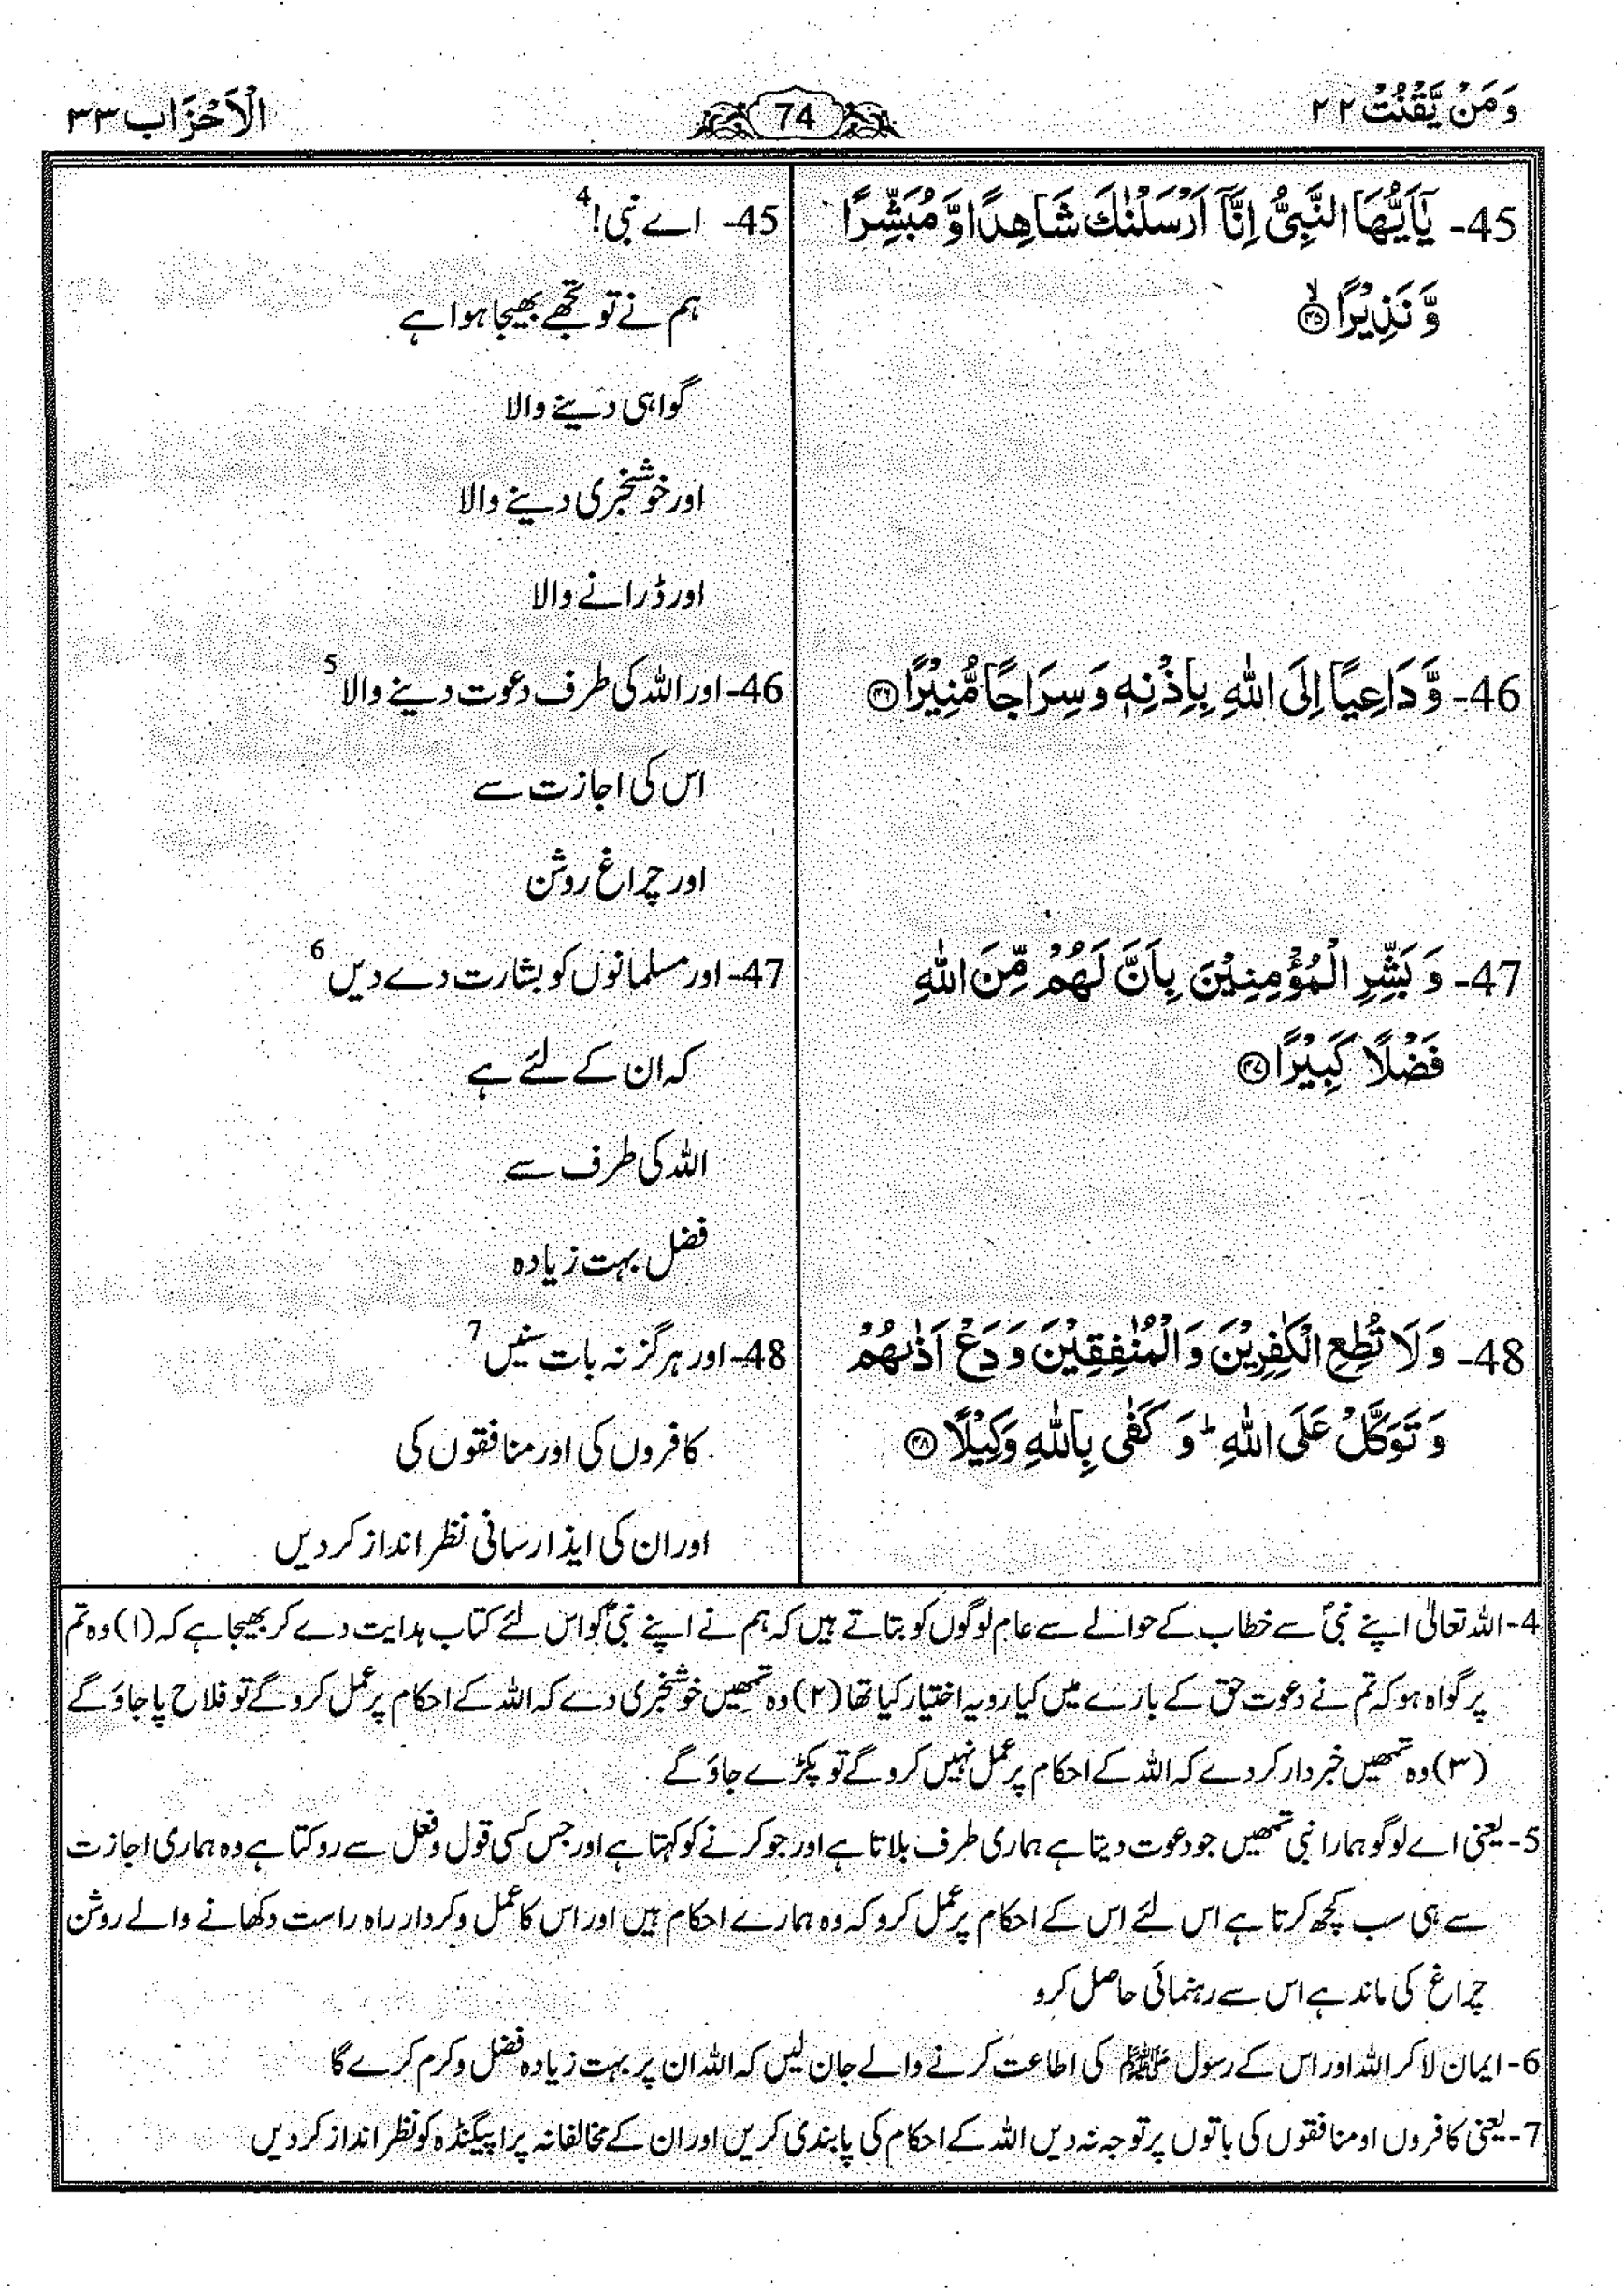 وَمَنْ يَّقْنُتْ ۲۲
74
الْاَحْزَاب ۳۳
45- يٰۤاَيُّهَا النَّبِيُّ اِنَّاۤ اَرْسَلْنٰكَ شَاهِدًا وَّ مُبَشِّرًا
وَّ نَذِيْرًا ۙ﴿۴۵﴾
45- اے نبی! 4
ہم نے تو تجھے بھیجا ہوا ہے
گواہی دینے والا
اور خوشخبری دینے والا
اور ڈرانے والا
46- وَّ دَاعِيًا اِلَى اللّٰهِ بِاِذْنِهٖ وَ سِرَاجًا مُّنِيْرًا ﴿۴۶﴾
46- اور اللہ کی طرف دعوت دینے والا 5
اس کی اجازت سے
اور چراغ روشن
47- وَ بَشِّرِ الْمُؤْمِنِيْنَ بِاَنَّ لَهُمْ مِّنَ اللّٰهِ
فَضْلًا كَبِيْرًا ﴿۴۷﴾
47- اور مسلمانوں کو بشارت دے دیں 6
کہ ان کے لئے ہے
اللہ کی طرف سے
فضل بہت زیادہ
48- وَلَا تُطِعِ الْكٰفِرِيْنَ وَ الْمُنٰفِقِيْنَ وَ دَعْ اَذٰىهُمْ
وَ تَوَكَّلْ عَلَى اللّٰهِ ؕ وَ كَفٰى بِاللّٰهِ وَكِيْلًا ﴿۴۸﴾
48- اور ہرگز نہ بات سنیں 7
کافروں کی اور منافقوں کی
اور ان کی ایذا رسانی نظر انداز کر دیں
4- اللہ تعالیٰ اپنے نبیؐ سے خطاب کے حوالے سے عام لوگوں کو بتاتے ہیں کہ ہم نے اپنے نبیؐ کو اس لئے کتاب ہدایت دے کر بھیجا ہے کہ (۱) وہ تم
پر گواہ ہو کہ تم نے دعوت حق کے بارے میں کیا رویہ اختیار کیا تھا (۲) وہ تمھیں خوشخبری دے کہ اللہ کے احکام پر عمل کرو گے تو فلاح پا جاؤ گے
(۳) وہ تمھیں خبردار کر دے کہ اللہ کے احکام پر عمل نہیں کرو گے تو پکڑے جاؤ گے
5- یعنی اے لوگو ہمارا نبی تمھیں جو دعوت دیتا ہے ہماری طرف بلاتا ہے اور جو کرنے کو کہتا ہے اور جس کسی قول و فعل سے روکتا ہے وہ ہماری اجازت
سے ہی سب کچھ کرتا ہے اس لئے اس کے احکام پر عمل کرو کہ وہ ہمارے احکام ہیں اور اس کا عمل و کردار راہ راست دکھانے والے روشن
چراغ کی ماند ہے اس سے رہنمائی حاصل کرو
6- ایمان لا کر اللہ اور اس کے رسول ﷺ کی اطاعت کرنے والے جان لیں کہ اللہ ان پر بہت زیادہ فضل و کرم کرے گا
7- یعنی کافروں اور منافقوں کی باتوں پر توجہ نہ دیں اللہ کے احکام کی پابندی کریں اور ان کے مخالفانہ پراپیگنڈہ کو نظر انداز کر دیں